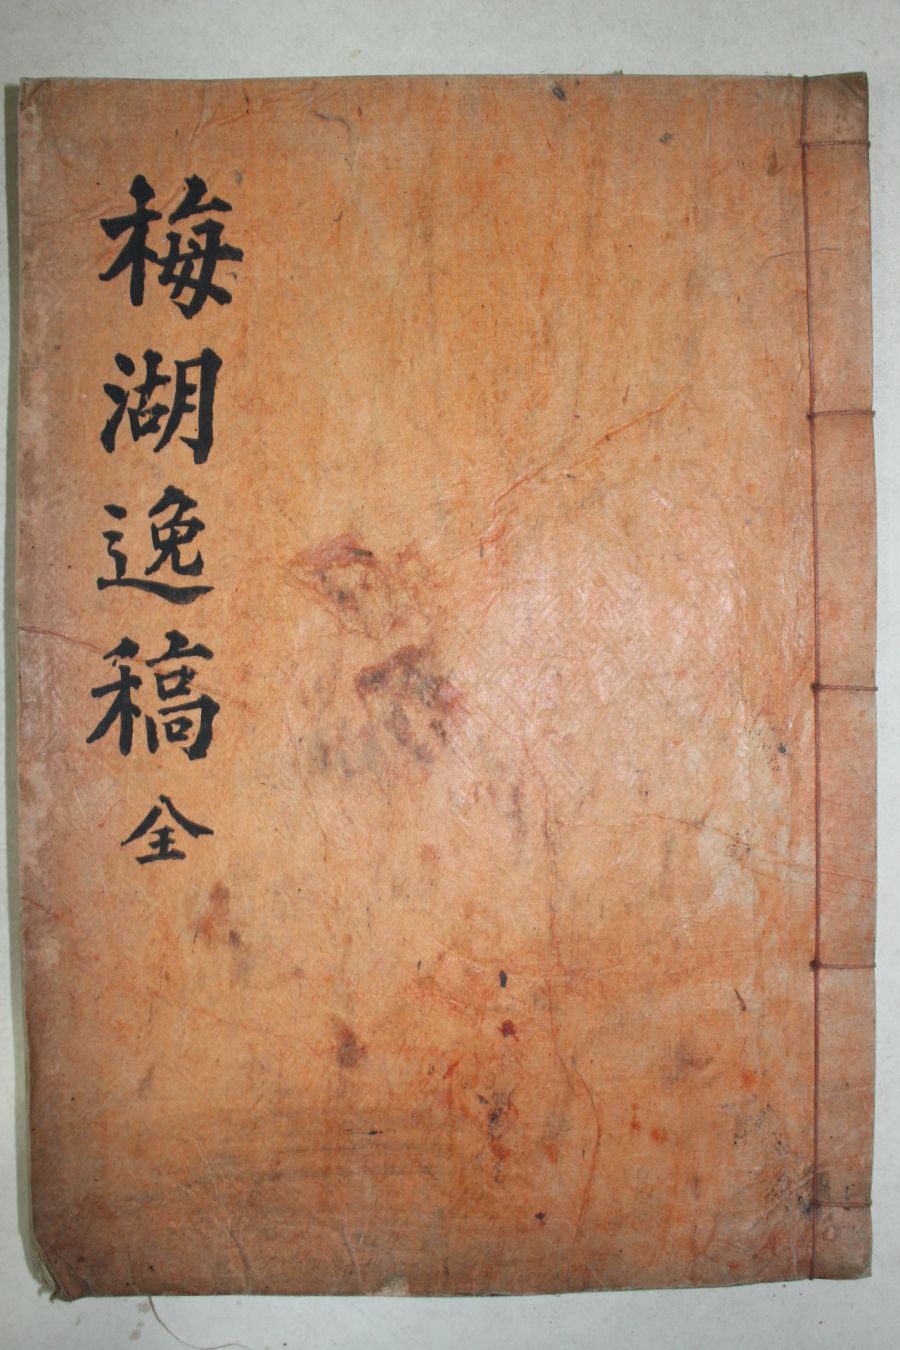 梅湖逸稿 全